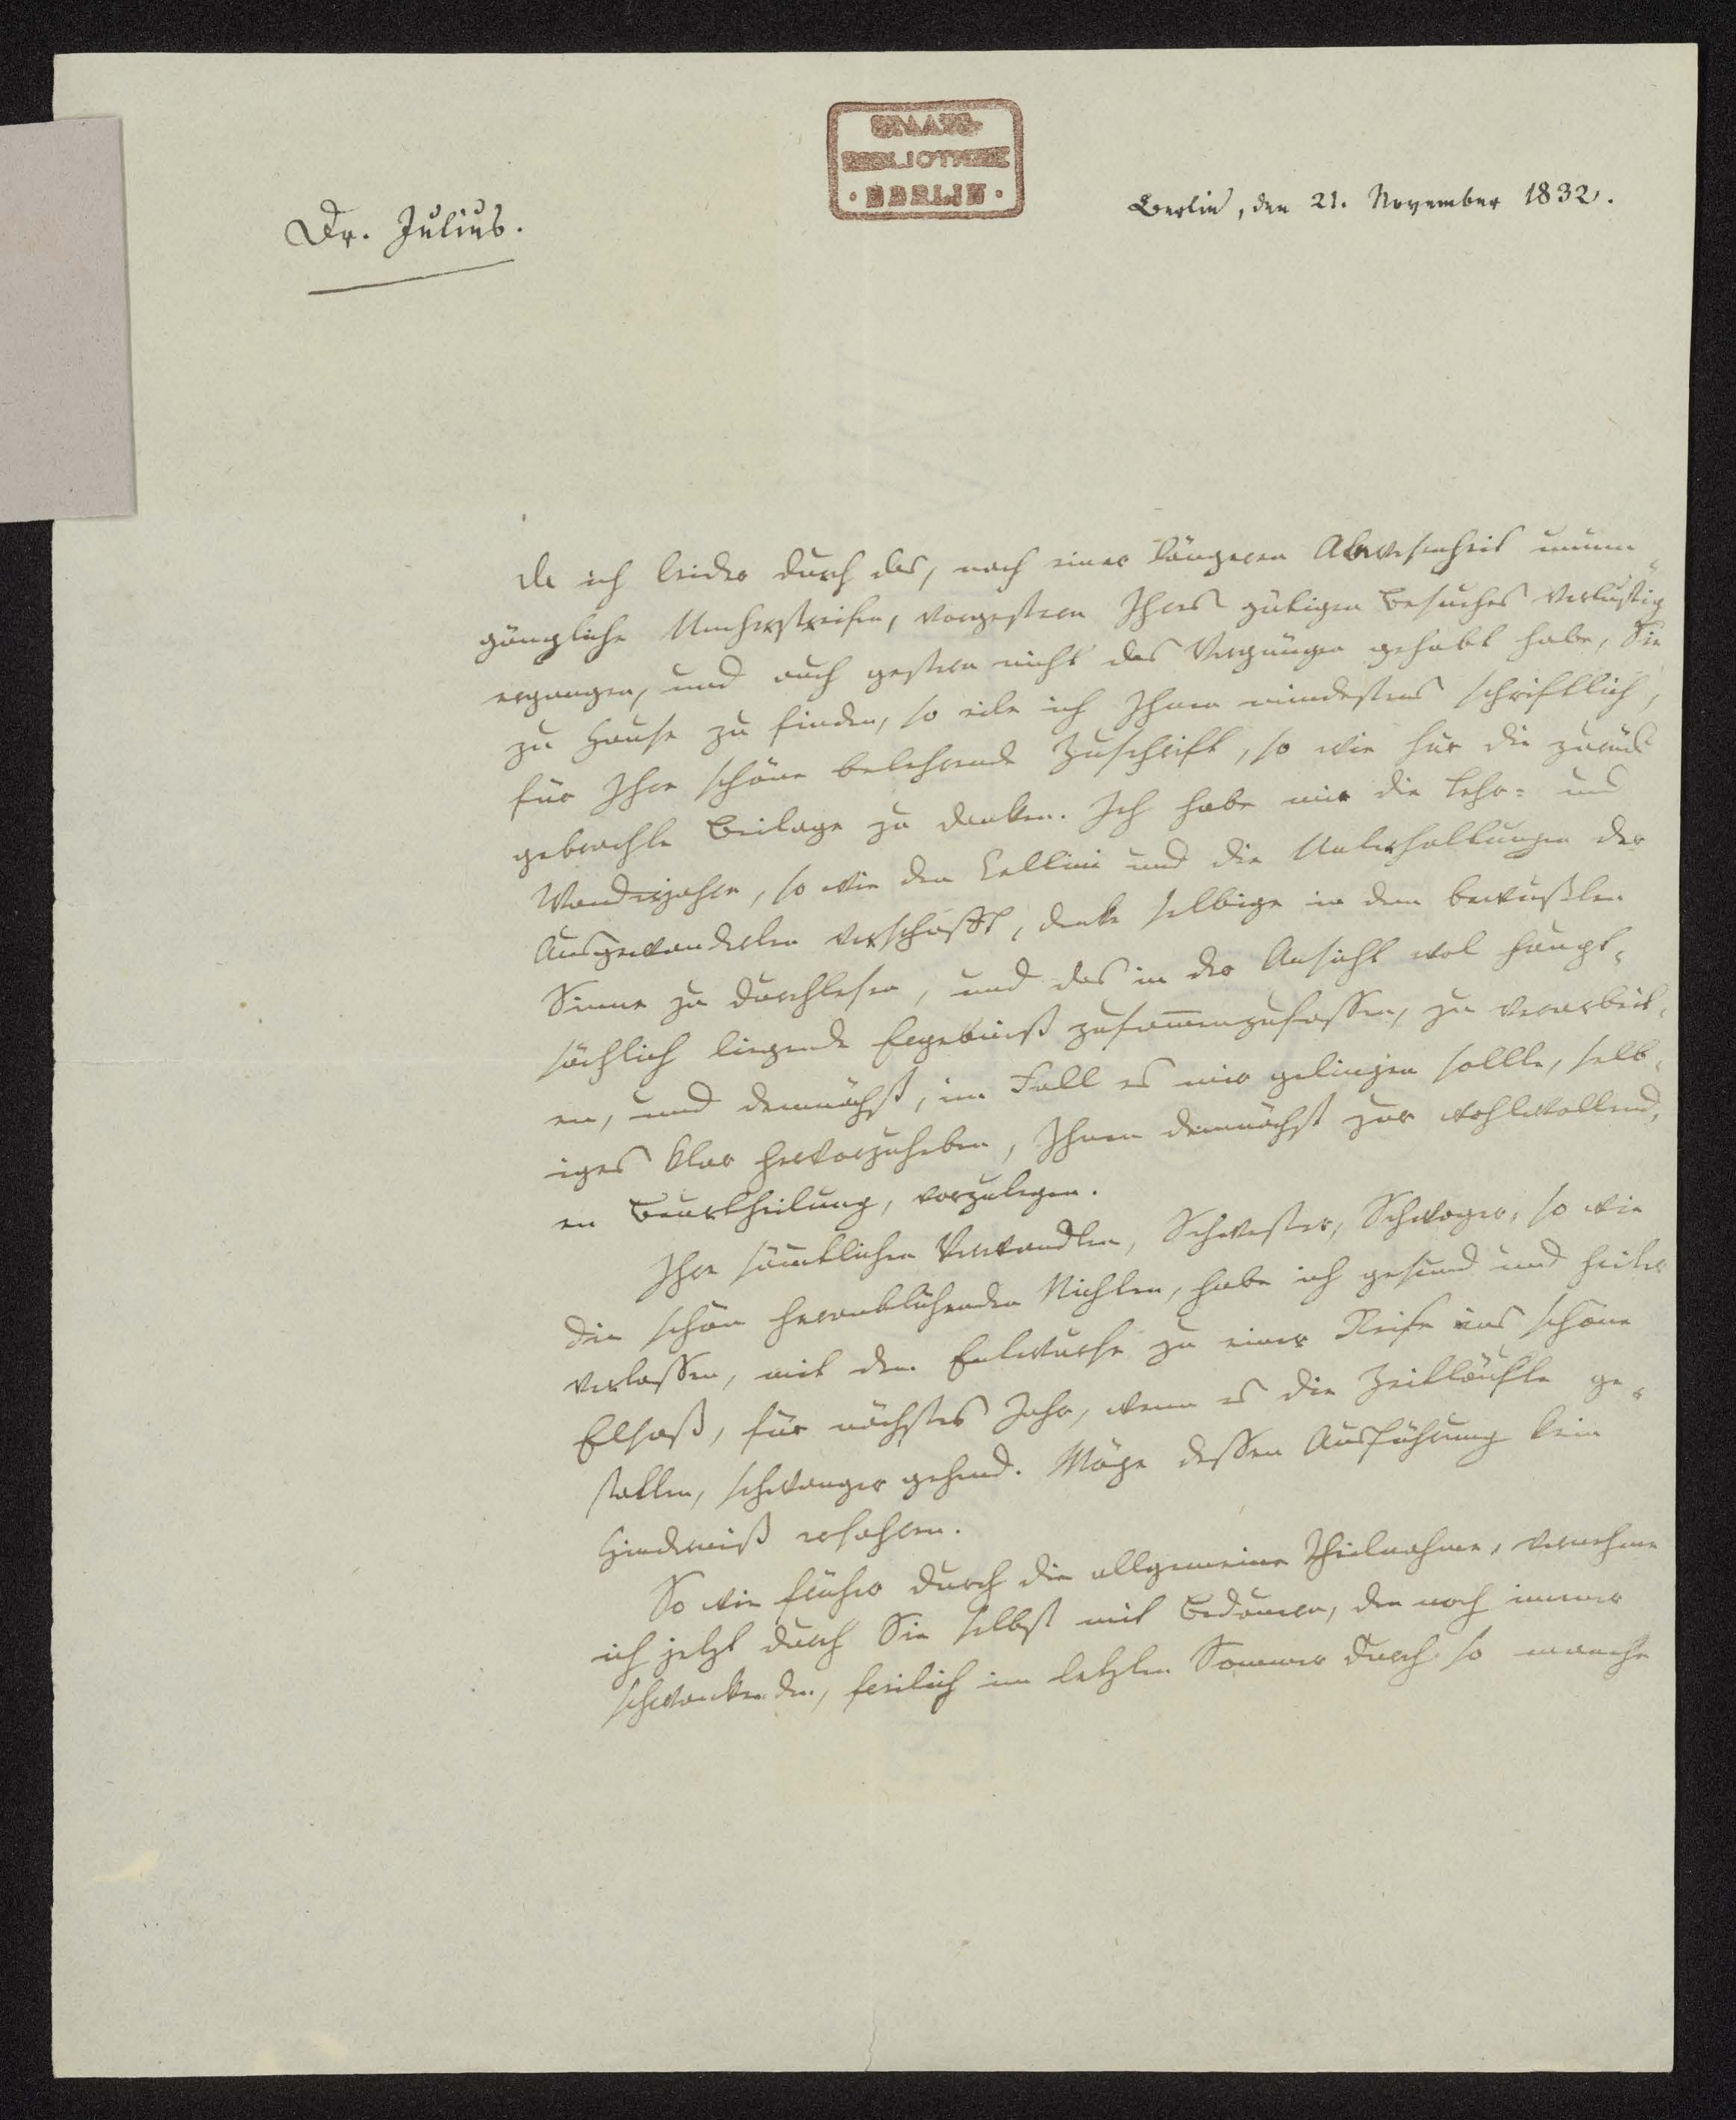 STAATS-
BIBLIOTHEK
· BERLIN ·
Dr. Julius.
Berlin, den 21. November 1832.
Da ich leider durch das, nach einer längeren Abwesenheit unum-
gängliche Umherstreifen, vorgestern Ihres gütigen Besuches verlustig
ergangen, und auch gestern nicht das Vergnügen gehabt habe, Sie
zu Hause zu finden, so eile ich Ihnen mindestens schriftlich,
für Ihre schöne belehrende Zuschrift, so wie für die zurück
gebrachte Beilage zu danken. Ich habe mir die Lehr- und
Wanderjahre, so wie den Cellini und die Unterhaltungen der
Ausgewanderten verschafft, denke selbige in dem bewußten
Sinne zu durchlesen, und das in der Ansicht wol haupt-
sächlich liegende Ergebniß zusammenzufassen, zu verarbeit-
en, und demnächst, im Fall es mir gelingen sollte, selb-
iges klar hervorzuheben, Ihnen demnächst zur wohlwollend-
en Beurtheilung, vorzulegen.
Ihre sämtlichen Verwandten, Schwester, Schwager, so wie
die schön heranblühenden Nichten, habe ich gesund und heiter
verlassen, mit dem Entwurfe zu einer Reise ins schöne
Elsaß, für nächstes Jahr, wenn es die Zeitläufte ge-
statten, schwanger gehend. Möge dessen Ausführung kein
Hinderniß erfahren.
So wie früher durch die allgemeine Theilnahme, vernehme
ich jetzt durch Sie selbst mit Bedauern, den noch immer
schwankenden, freilich im letzten Sommer durch so manche